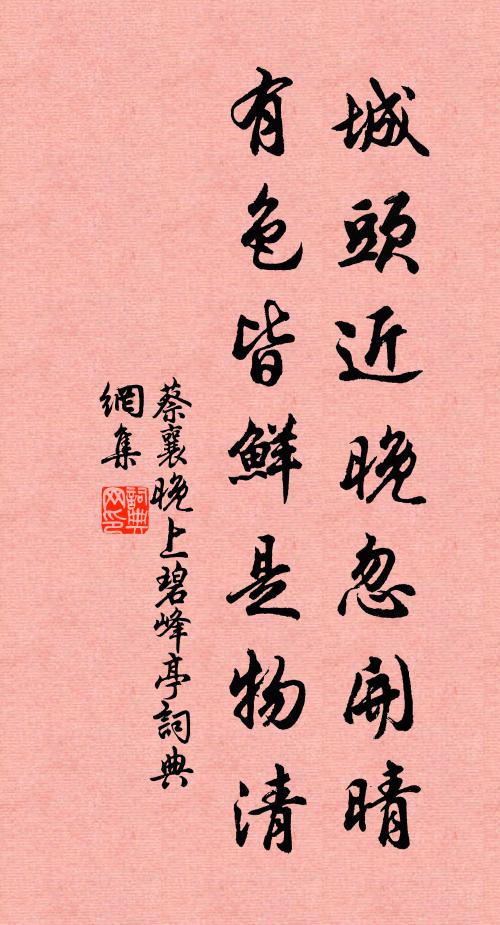 城頭近晚忽開晴
有色皆鮮是物清
蔡襄晚上碧峰亭詞典
網集
詞典
网印